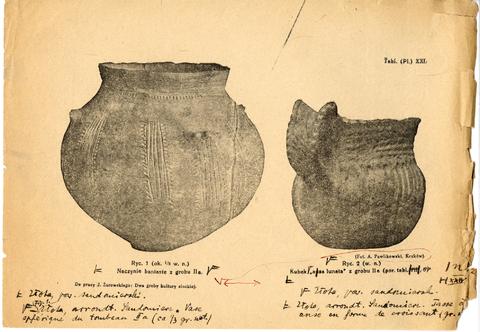 Tabl. (Pl.) XXI.
Ryc. 1 (ok. ⅓ w. n.)
Naczynie baniaste z grobu IIa.
Do pracy J. Żurowskiego: Dwa groby kultury złockiej.
(Fot. A. Pawlikowski, Kraków)
Ryc. 2 (w. n.)
Kubek „ansa lunata" z grobu IIa (por. tabl.
Złota, pow. sandomierski.
Złota, arrondt. Sandomierz. Vase
sphérique du tombeau IIa (ca ⅓ gr. nat.)
Złota, pow. sandomierski.
Złota, arrondt. Sandomierz. Tasse à
anse en forme de croissant (gr.